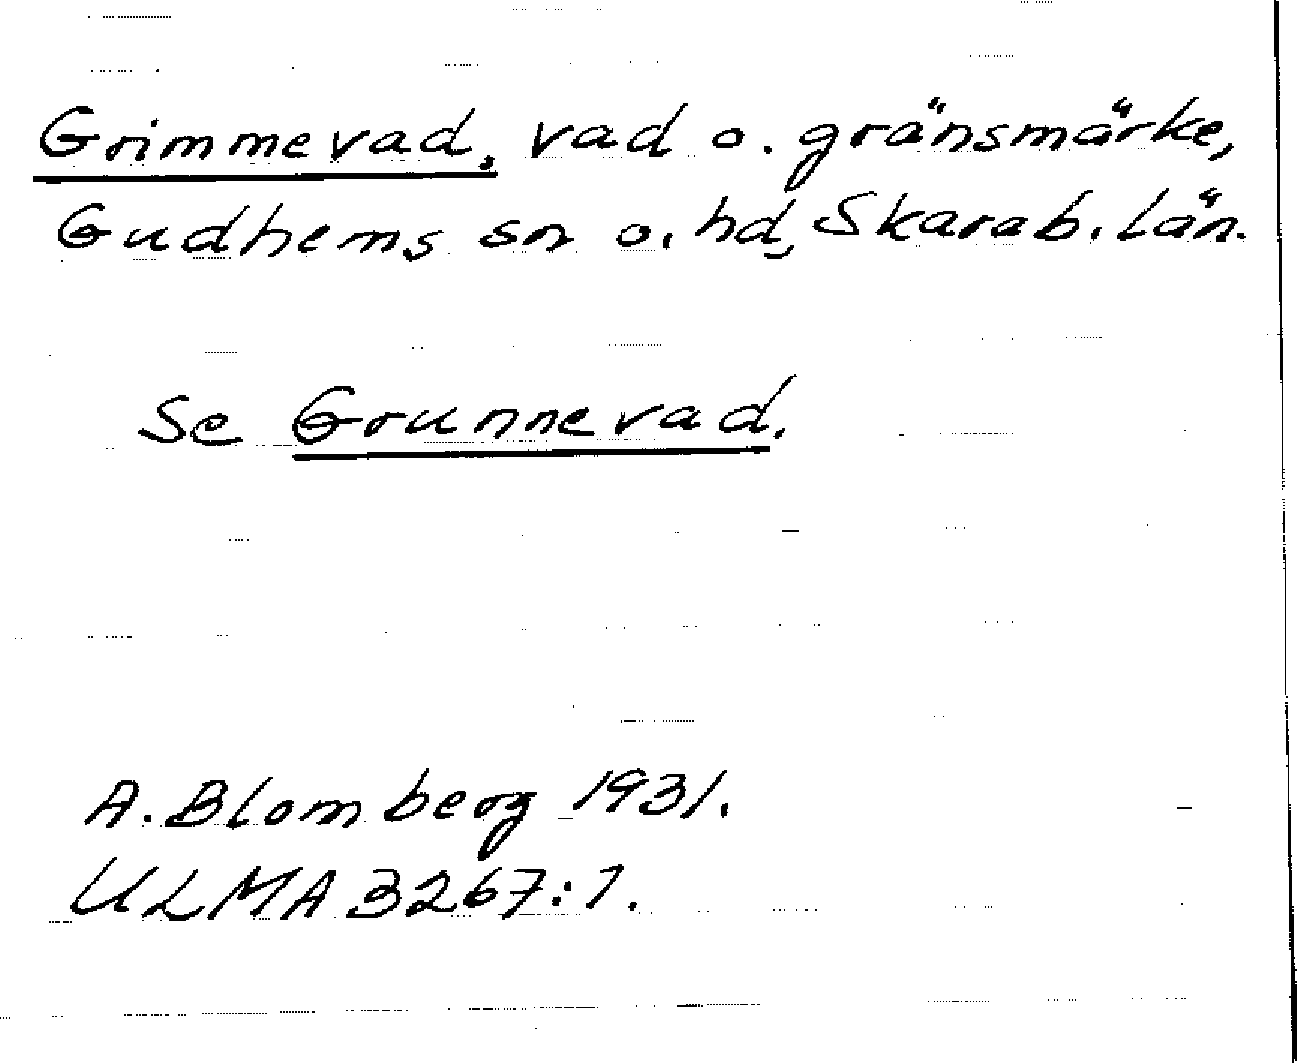 Grimmevad, vad o. gränsmärke,
Gudhems sn o. hd, Skarab. län.
Se Grunnevad.
A. Blomberg 1931.
ULMA 3267:1.